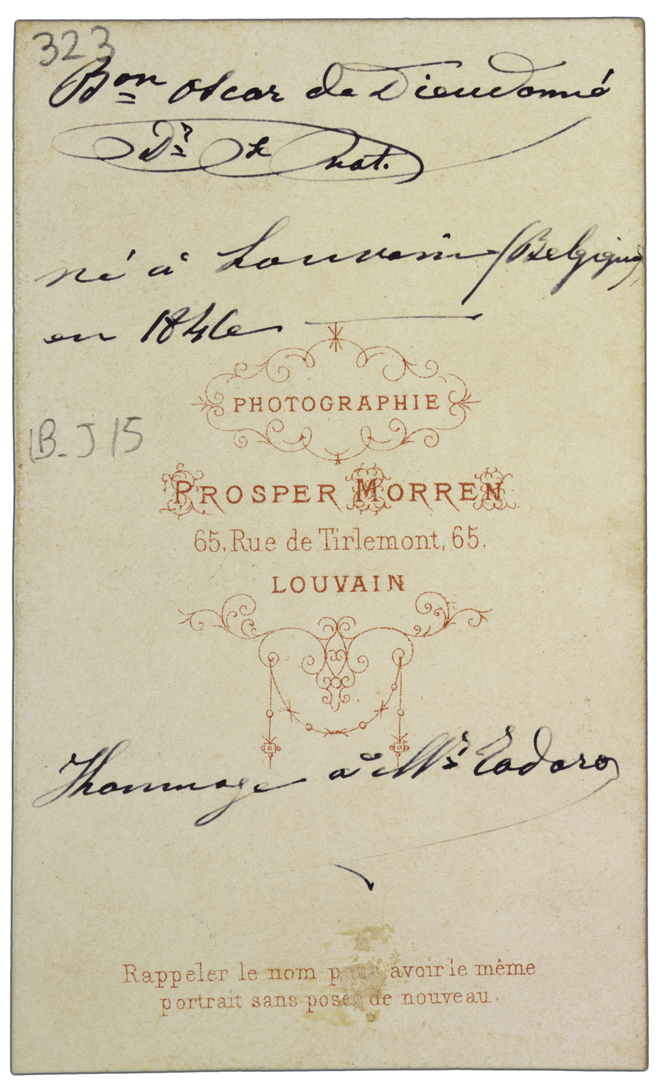 323
Bon Oscar de Dieudonné
Dr Sc nat.
né à Louvain (Belgique)
en 1846
PHOTOGRAPHIE
B-J 15
PROSPER MORREN
65, Rue de Tirlemont, 65.
LOUVAIN
Hommage à Mr Todaro
Rappeler le nom pour avoir le même
portrait sans poser de nouveau.